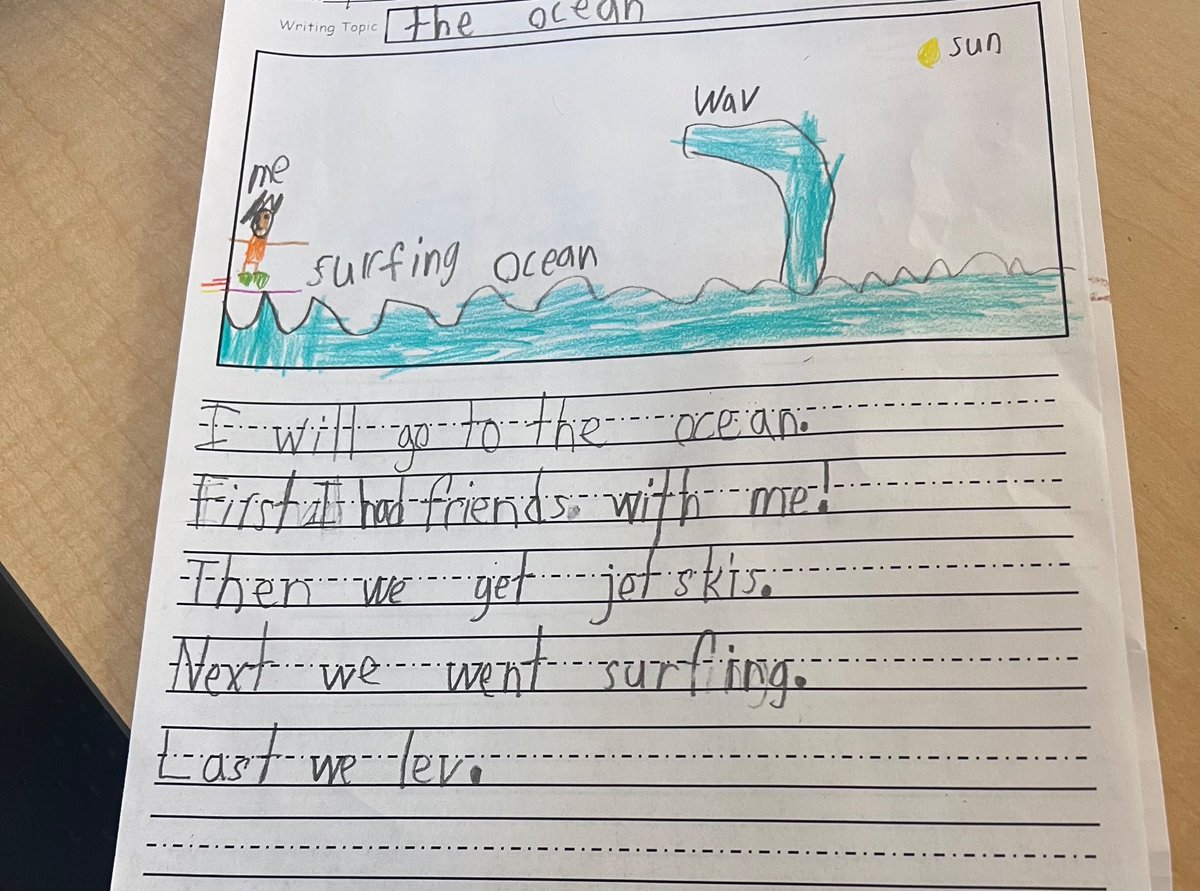 Writing Topic the ocean
sun
Wav
me
surfing ocean
I will go to the ocean.
First I had friends. with me!
Then we get jet skis.
Next we went surfing.
Last we lev.